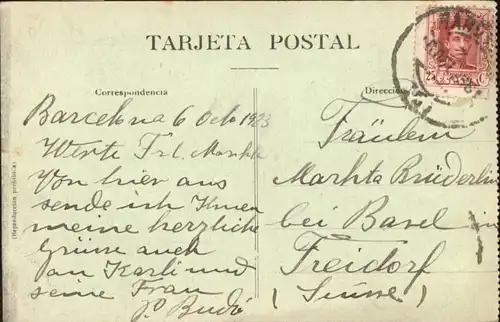 TARJETA POSTAL
Correspondencia
Dirección
Barcelona 6 Octo 1923
Werte Frl. Markta
Von hier aus
sende ich Ihnen
meine herzliche
Grüsse auch
an Karli und
seine Frau
Fräulein
Markta Brüderlin
bei Basel in
Freidorf
(Suisse)
(Reproducción prohibida)
25 C